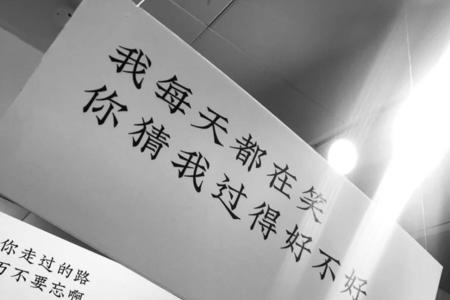 我每天都在笑
你猜我过得好不好
你走过的路
万不要忘啊